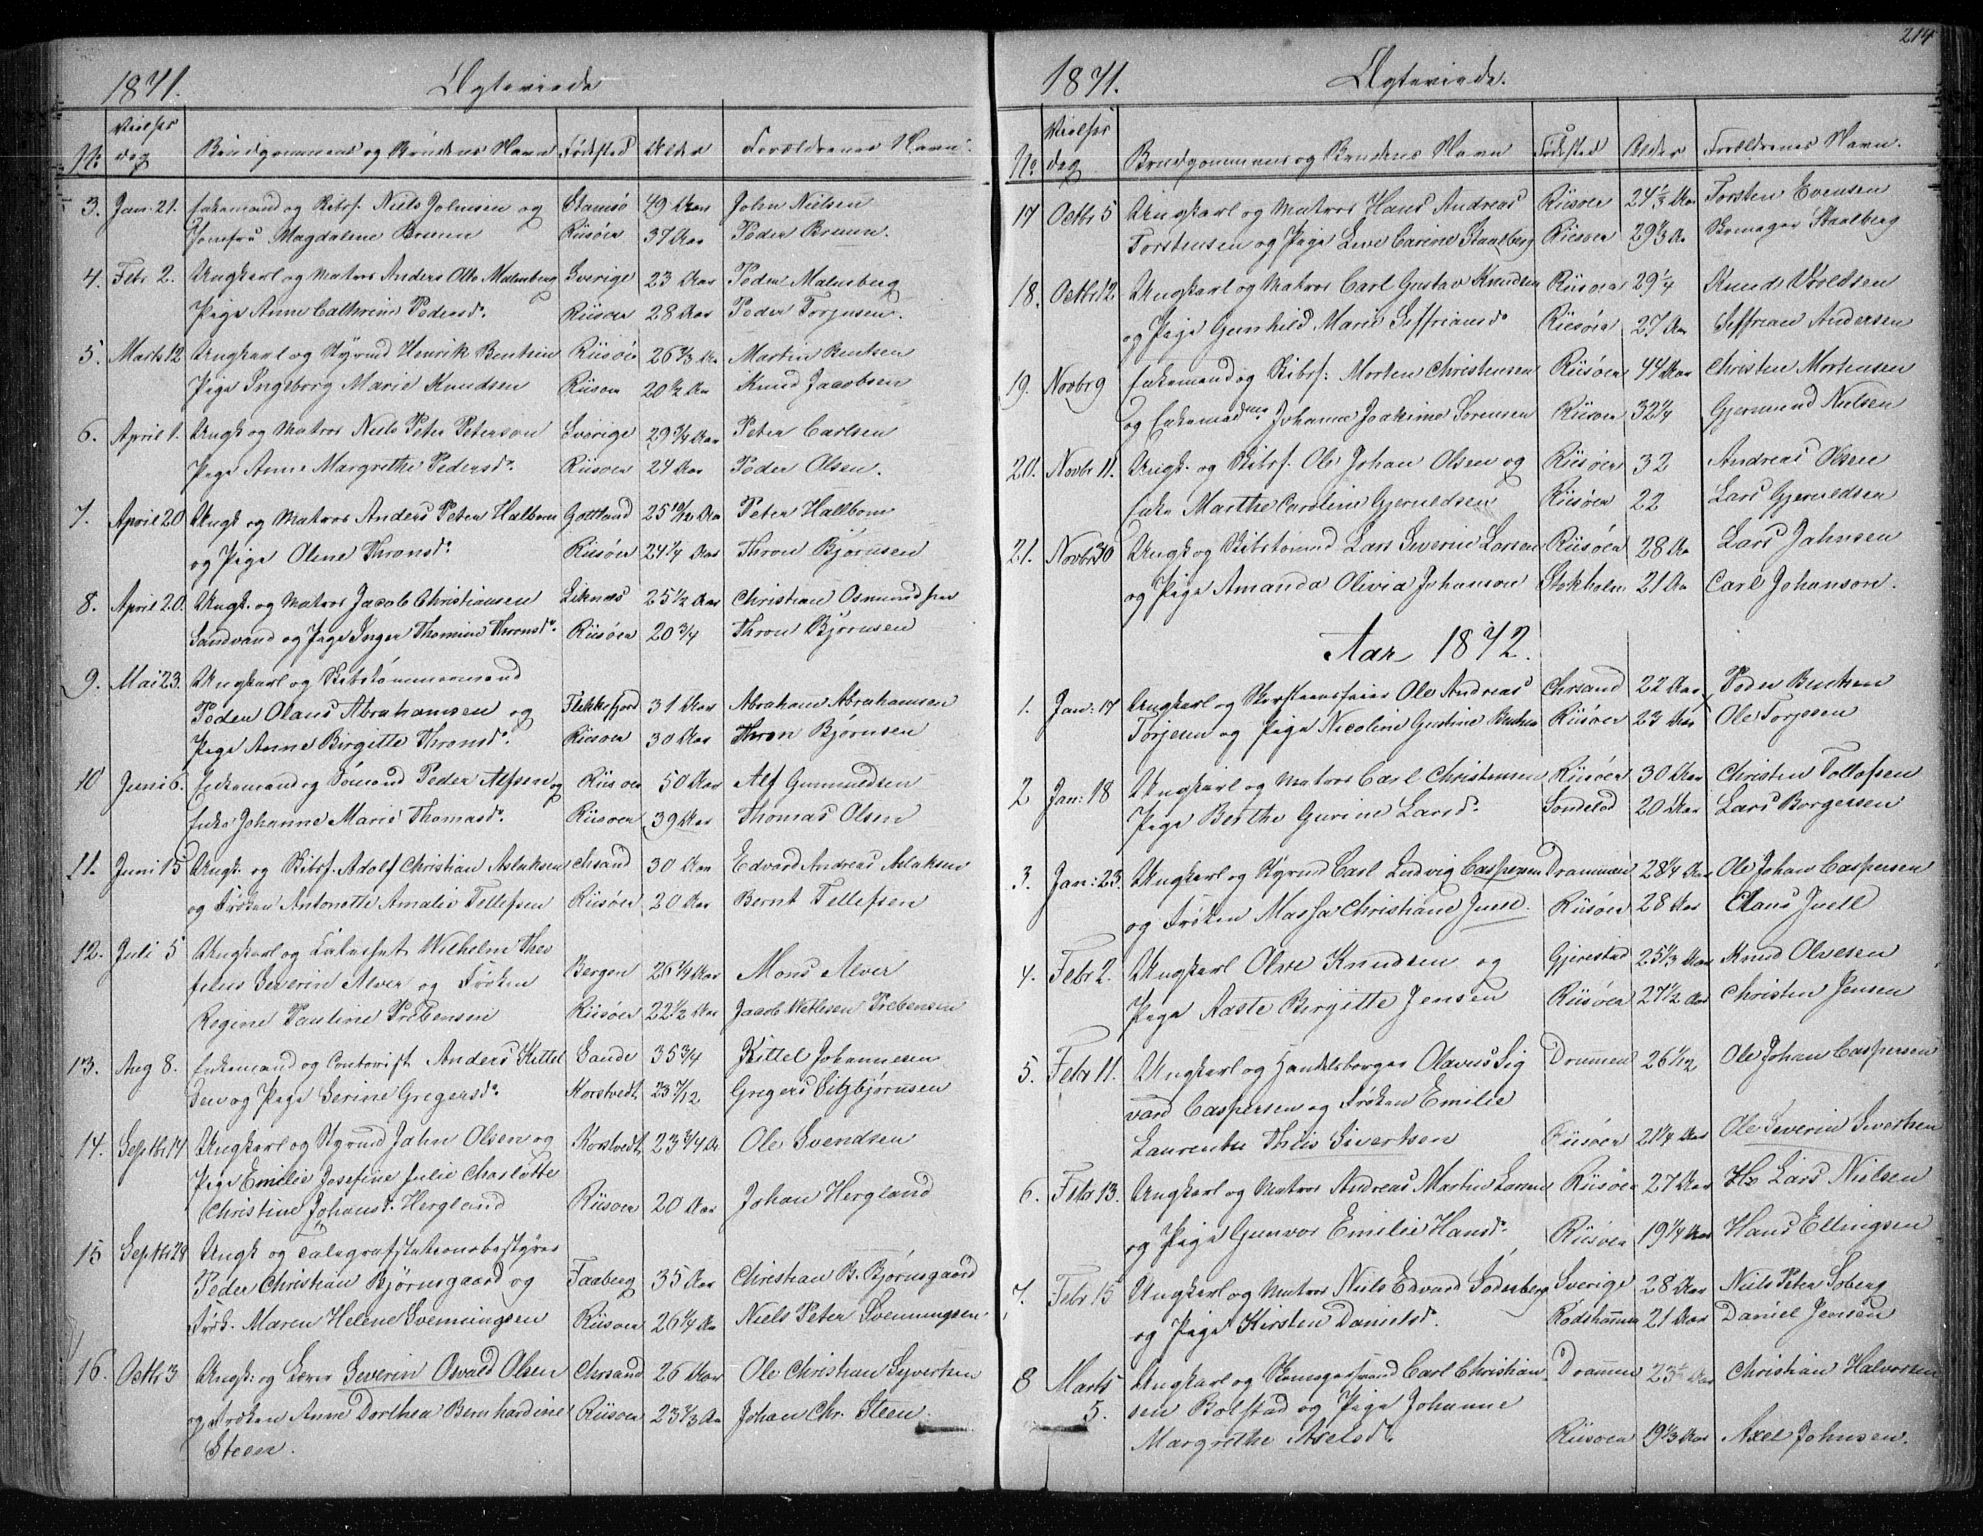 1871. Ægteviede
No. Vielses dag Brudgommens og Brudens Navn Fødested Alder Forældrenes Navn.
3. Jan. 21. Enkemand og Skibsf. Niels Johnsen og Stamsø 49 Aar John Nielsen
Jomfru Magdalene Bruun Riisøer 37 Aar Peder Bruun.
4. Febr. 2. Ungkarl og Matros Anders Otto Malmberg Sverige 23 Aar Peder Malmberg
Pige Anne Cathrine Pedersd. Riisøer 28 Aar Peder Torjusen.
5. Marts 12 Ungkarl og Styrmd Henrik Bentsen Riisøer 26 Aar Martin Bentsen
Pige Ingeborg Marie Knudsen Riisøer 20 1/2 Aar Knud Jacobsen
6. April 1. Ungk og Matros Niels Peter Peterson Sverige 29 3/4 Aar Peter Carlsen
Pige Anne Margrethe Pedersd. Riisøer 24 Aar Peder Olsen.
7. April 20 Ungk og Matros Anders Peter Halbom Gottland 25 10/12 Aar Peter Hallbom
og Pige Oline Thronsd. Riisøer 24 1/4 Aar Thron Bjørnsen
8. April 20. Ungk. og Matros Jacob Christiansen Liknæs 25 1/2 Aar Christian Osmundsen
Sandvand og Pige Inger Thomine Thronsd. Riisøer 20 3/4 Thron Bjørnsen
9. Mai 23. Ungkarl og Skibstømmermand
Peder Olaus Abrahamsen og Flekkefjord 31 Aar Abraham Abrahamsen
Pige Anne Birgitte Thronsd. Riisøer 30 Aar Thron Bjørnsen
10 Juni 6. Enkemand og Sømand Peder Alfsen og Riisøer 50 Aar Alf Gunmundsen
Enke Johanne Marie Thomasd. Riisøer 39 Aar Thomas Olsen
11. Juni 15 Ungk. og Skibsf. Adolf Christian Aslaksen Chrsand 30 Aar Edvard Andreas Aslaksen
og Frøken Antonette Amalie Tellefsen Riisøer 20 Aar Bernt Tellefsen
12. Juli 5 Ungkarl og Wilhelm Theo
filus Severin Alver og Frøken Bergen 26 1/4 Aar Mons Alver
Regine Pauline Prebensen Riisøer 22 1/2 Aar Jacob Wetlesen Prebensen
13. Aug 8. Enkemand og Contorist Anders Kittel Sande 35 3/4 Kittel Johannesen
og Pige Serine Gregersd. Korstvedt 23 7/12 Gregers Sitzbjørnsen
14. Septbr 14 Ungkarl og Styrmd Jahn Olsen og Korstvedt 23 3/4 Aar Ole Svendsen
Pige Emilie Josefine Julie Charlotte
Christine Johansd. Hergland Riisøer 20 Aar Johan Hergland
15 Septbr 28 Ungk og Telegrafstationsbestyrer
Peder Christian Bjørnsgaard og Faaberg 35 Aar Christian B. Bjørnsgaard
Frøk. Maren Helene Svenningsen Riisøer 26 1/4 Aar Niels Peter Svenningsen.
16. Octbr 3 Ungk. og Lærer Severin Osvald Olsen Chrsand 26 Aar Ole Christian Syvertsen
og Frøken Anne Dorthea Bernhardine Riisøer 23 1/3 Aar Johan Chr. Steen.
Steen.
214
1871. Ægteviede.
No. Vielses dag Brudgommens og Brudens Navn Fødested Alder Forældrenes Navn.
17 Octbr 5 Ungkarl og Matros Hans Andreas Riisøer 24 1/2 Aar Torsten Evensen
Torstensen og Pige Live Carine Staalberg Riisøer 29 1/3 Aar Skomager Staalberg
18. Octbr 12 Ungkarl og Matros Carl Gustav Knudsen Riisøer 29 1/4 Knud Woldsen
og Pige Gunhild Marie Siffriansd Riisøer 27 Aar Siffrian Andersen
19. Novbr 9 Enkemand og Skibsf: Morten Christensen Riisøer 44 Aar Christen Mortensen
og Enkemadme Johanne Joakime Sørensen Riisøer 32 1/4 Gjermund Nielsen
20. Novbr 11. Ungk. og Skibsf. Ole Johan Olsen og Riisøer 32 Andreas Olsen
Enke Marthe Caroline Gjeruldsen Riisøer 22 Lars Gjeruldsen
21. Novbr 30 Ungk og Skibstømmd Lars Severin Larsen Riisøer 28 Aar Lars Jahnsen
og Pige Amanda Olivia Johanson Stokholm 21 Aar Carl Johanson.
Aar 1872.
1. Jan: 17 Ungkarl og Skorstensfeier Ole Andreas Chrsand 22 Aar Peder Bentsen
Torjesen og Pige Nicoline Gustine Bentsen Riisøer 23 Aar Ole Torjesen
2 Jan: 18 Ungkarl og Matros Carl Christensen Riisøer 30 Aar Christen Tollofsen
Pige Berthe Gurine Larsd. Søndeled 20 Aar Lars Borgersen
3. Jan: 23. Ungkarl og Styrmd Carl Ludvig Caspersen Drammen 28 1/4 Aar Ole Johan Caspersen
og Frøken Massa Christiane Juell. Riisøer 28 Aar Claus Juell
4. Febr 2. Ungkarl Olve Knudsen og Gjerestad 25 1/3 Aar Knud Olvesen
Pige Aaste Birgitte Jensen Riisøer 27 1/2 Aar Christen Jensen
5. Febr 11. Ungkarl og Handelsborger Olavus Sig Drammen 26 1/12 Ole Johan Caspersen
vard Caspersen og Frøken Emilie
Laurentze Thiis Sivertsen Riisøer 21 1/4 Aar Ole Severin Sivertsen
6. Febr 13. Ungkarl og Matros Andreas Martin Larsen Riisøer 27 Aar Lars Nielsen
og Pige Gunvor Emilie Hansd. Riisøer 19 1/4 Aar Hans Ellingsen
7. Febr 15 Ungkarl og Matros Niels Edvard Søderberg Sverige 28 Aar Niels Peter Søberg
og Pige Kirsten Danielsd. Rødshammer 21 Aar Daniel Jensen
8 Marts 5. Ungkarl og Skomagersvend Carl Christian Drammen 23 Aar Christian Halvorsen
sen Bolstad og Pige Johanne
Margrethe Axelsd. Riisøer 19 1/3 Aar Axel Johnsen.